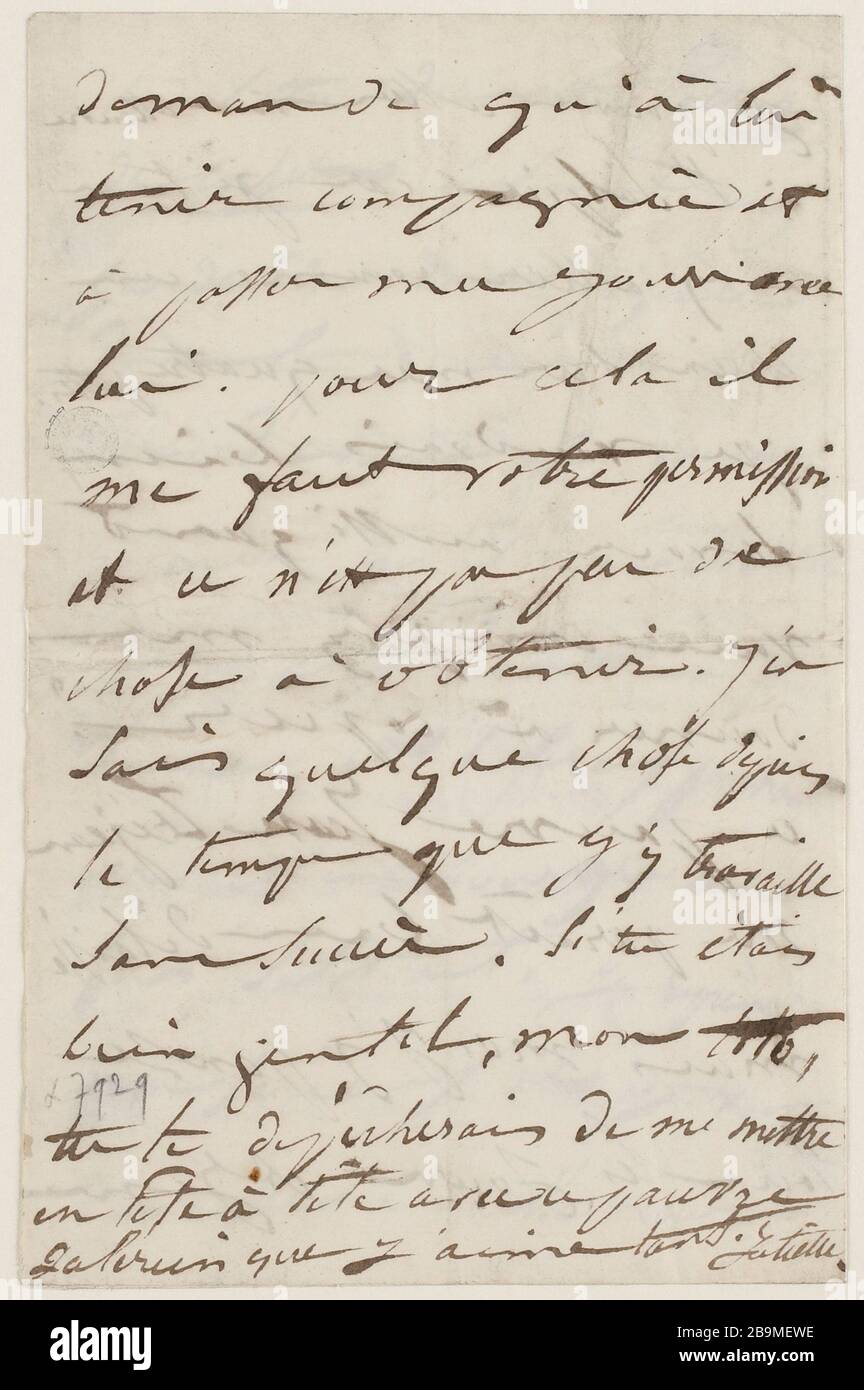 demande qu'à lui
tenir compagnie et
à passer mes jours avec
lui. pour cela il
me faut votre permission
et ce n'est pas peu de
chose à obtenir. J'en
sais quelque chose depuis
le temps que j'y travaille
sans succès. Si tu étais
bien gentil, mon toto,
α7929
tu te dépêcherais de me mettre
en tête à tête avec ce pauvre
que j'aime tant. Juliette.
alamy
Image ID: 2B9MEWE
www.alamy.com